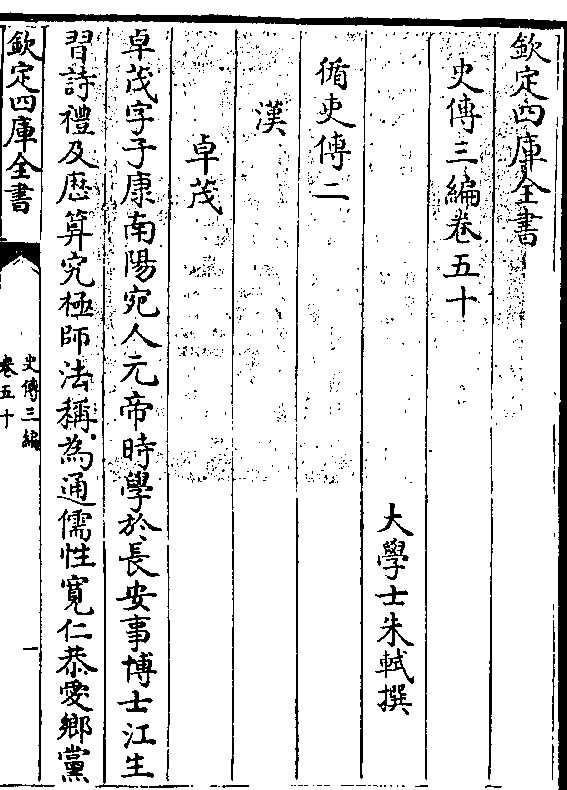 欽定四庫全書
史傳三編卷五十
大學士朱軾撰
循吏傳二
漢
卓茂
卓茂字子康南陽宛人元帝時學於長安事博士江生
習詩禮及厯算究極師法稱為通儒性寛仁恭愛鄉黨
欽定四庫全書
史傳三編
卷五十
一